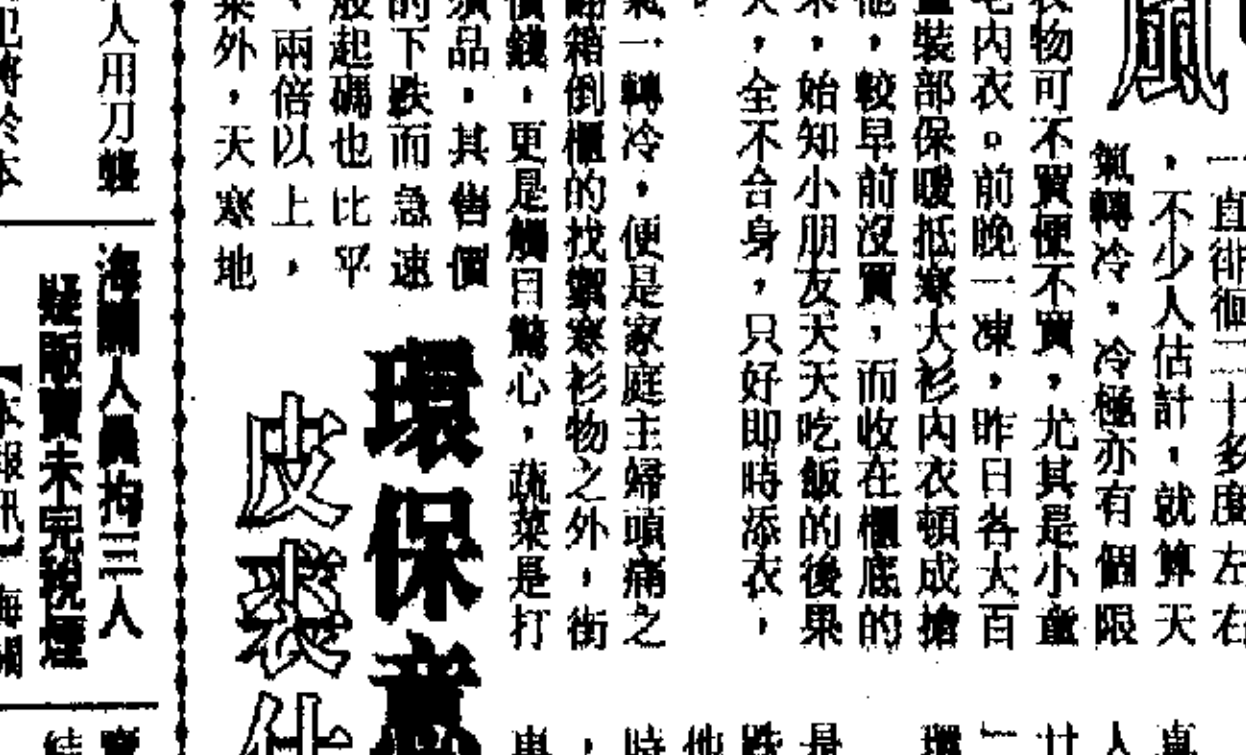 風
一直徘徊二十多度左右
，不少人估計，就算天
氣轉冷，冷極亦有個限
衣物可不買便不買，尤其是小童
毛內衣。前晚一凍，昨日各大百
童裝部保暖抵寒大衫內衣頓成搶
他，較早前沒買，而收在櫃底的
來，始知小朋友天天吃飯的後果
大，全不合身，只好即時添衣，
氣一轉冷，便是家庭主婦頭痛之
翻箱倒櫃的找禦寒衫物之外，街
價錢，更是觸目驚心，蔬菜是打
須品，其售價
的下跌而急速
般起碼也比平
、兩倍以上，
菜外，天寒地
環保意
皮裘仕
人用刀
海關人員拘三人
疑販賣未完稅煙
【本報訊】海關